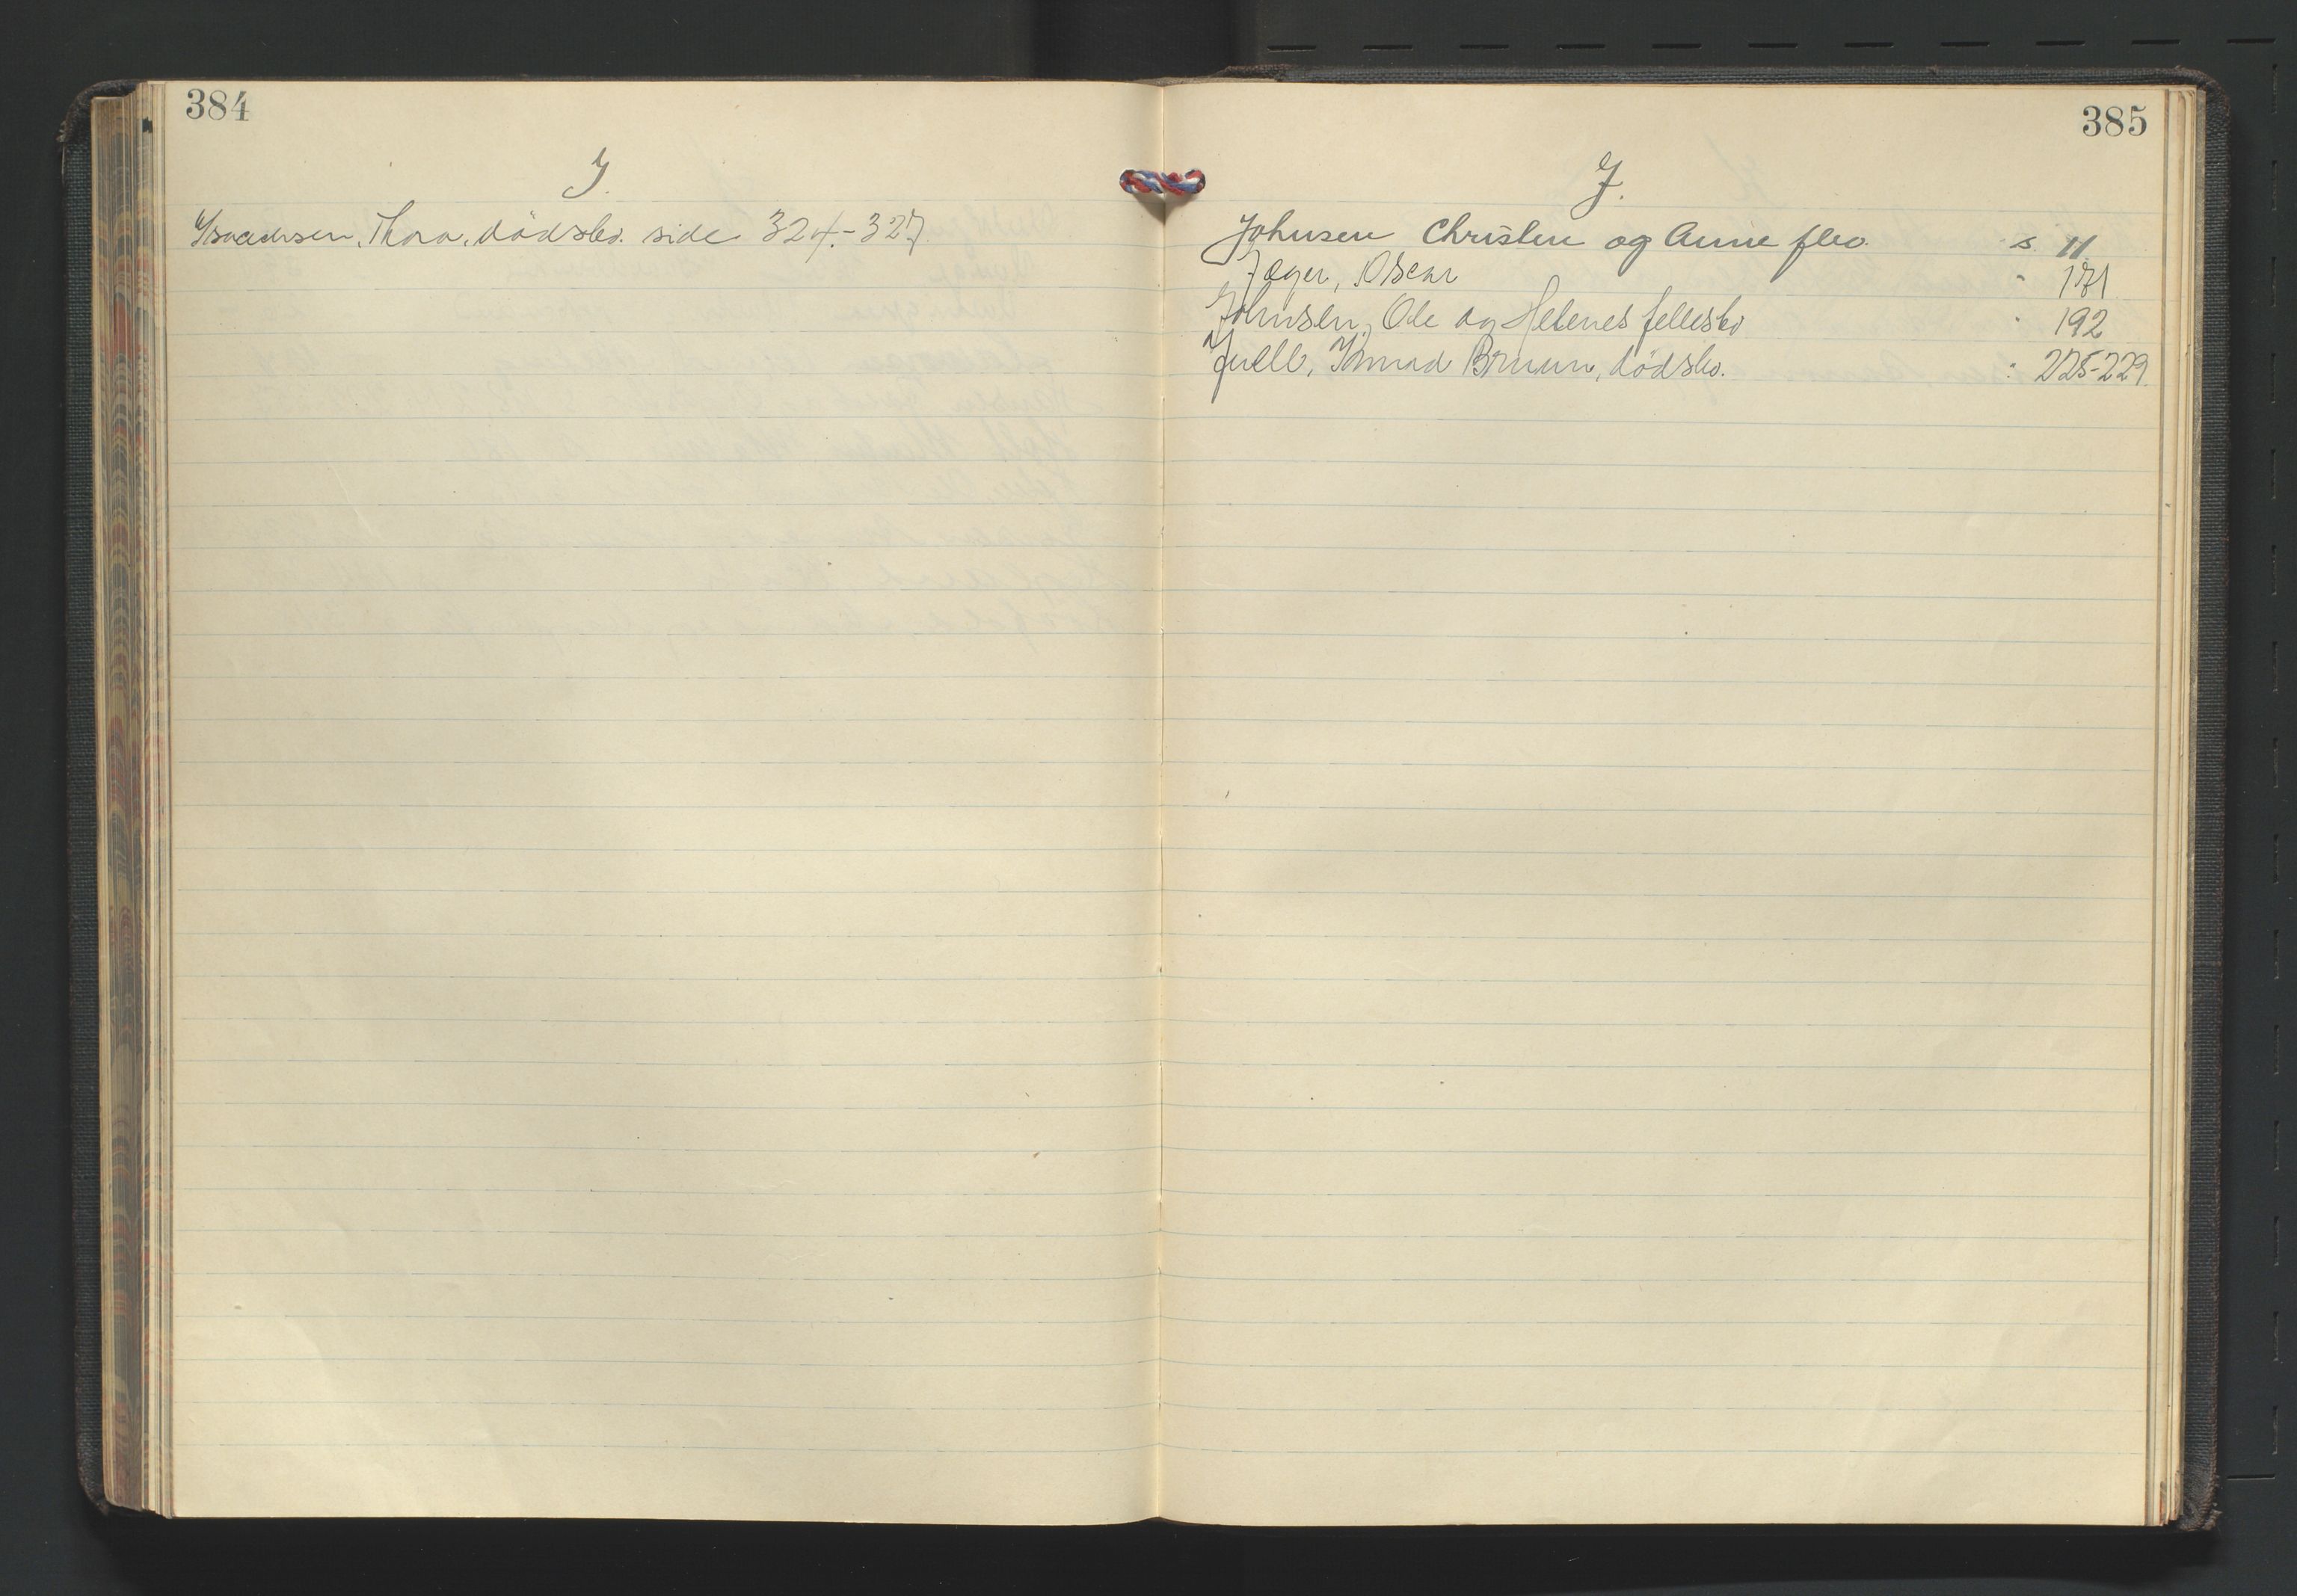 384
I.
Isaachsen, Thora, dödsbo. side 324.-327.
385
J.
Johnsen Christen og Anne flbo. s. 11.
Jager, Oscar " 171
Johnsen, Ole og Helenes fellesbo " 192
Juell, Knud Bruun, dödsbo. " 225-229.